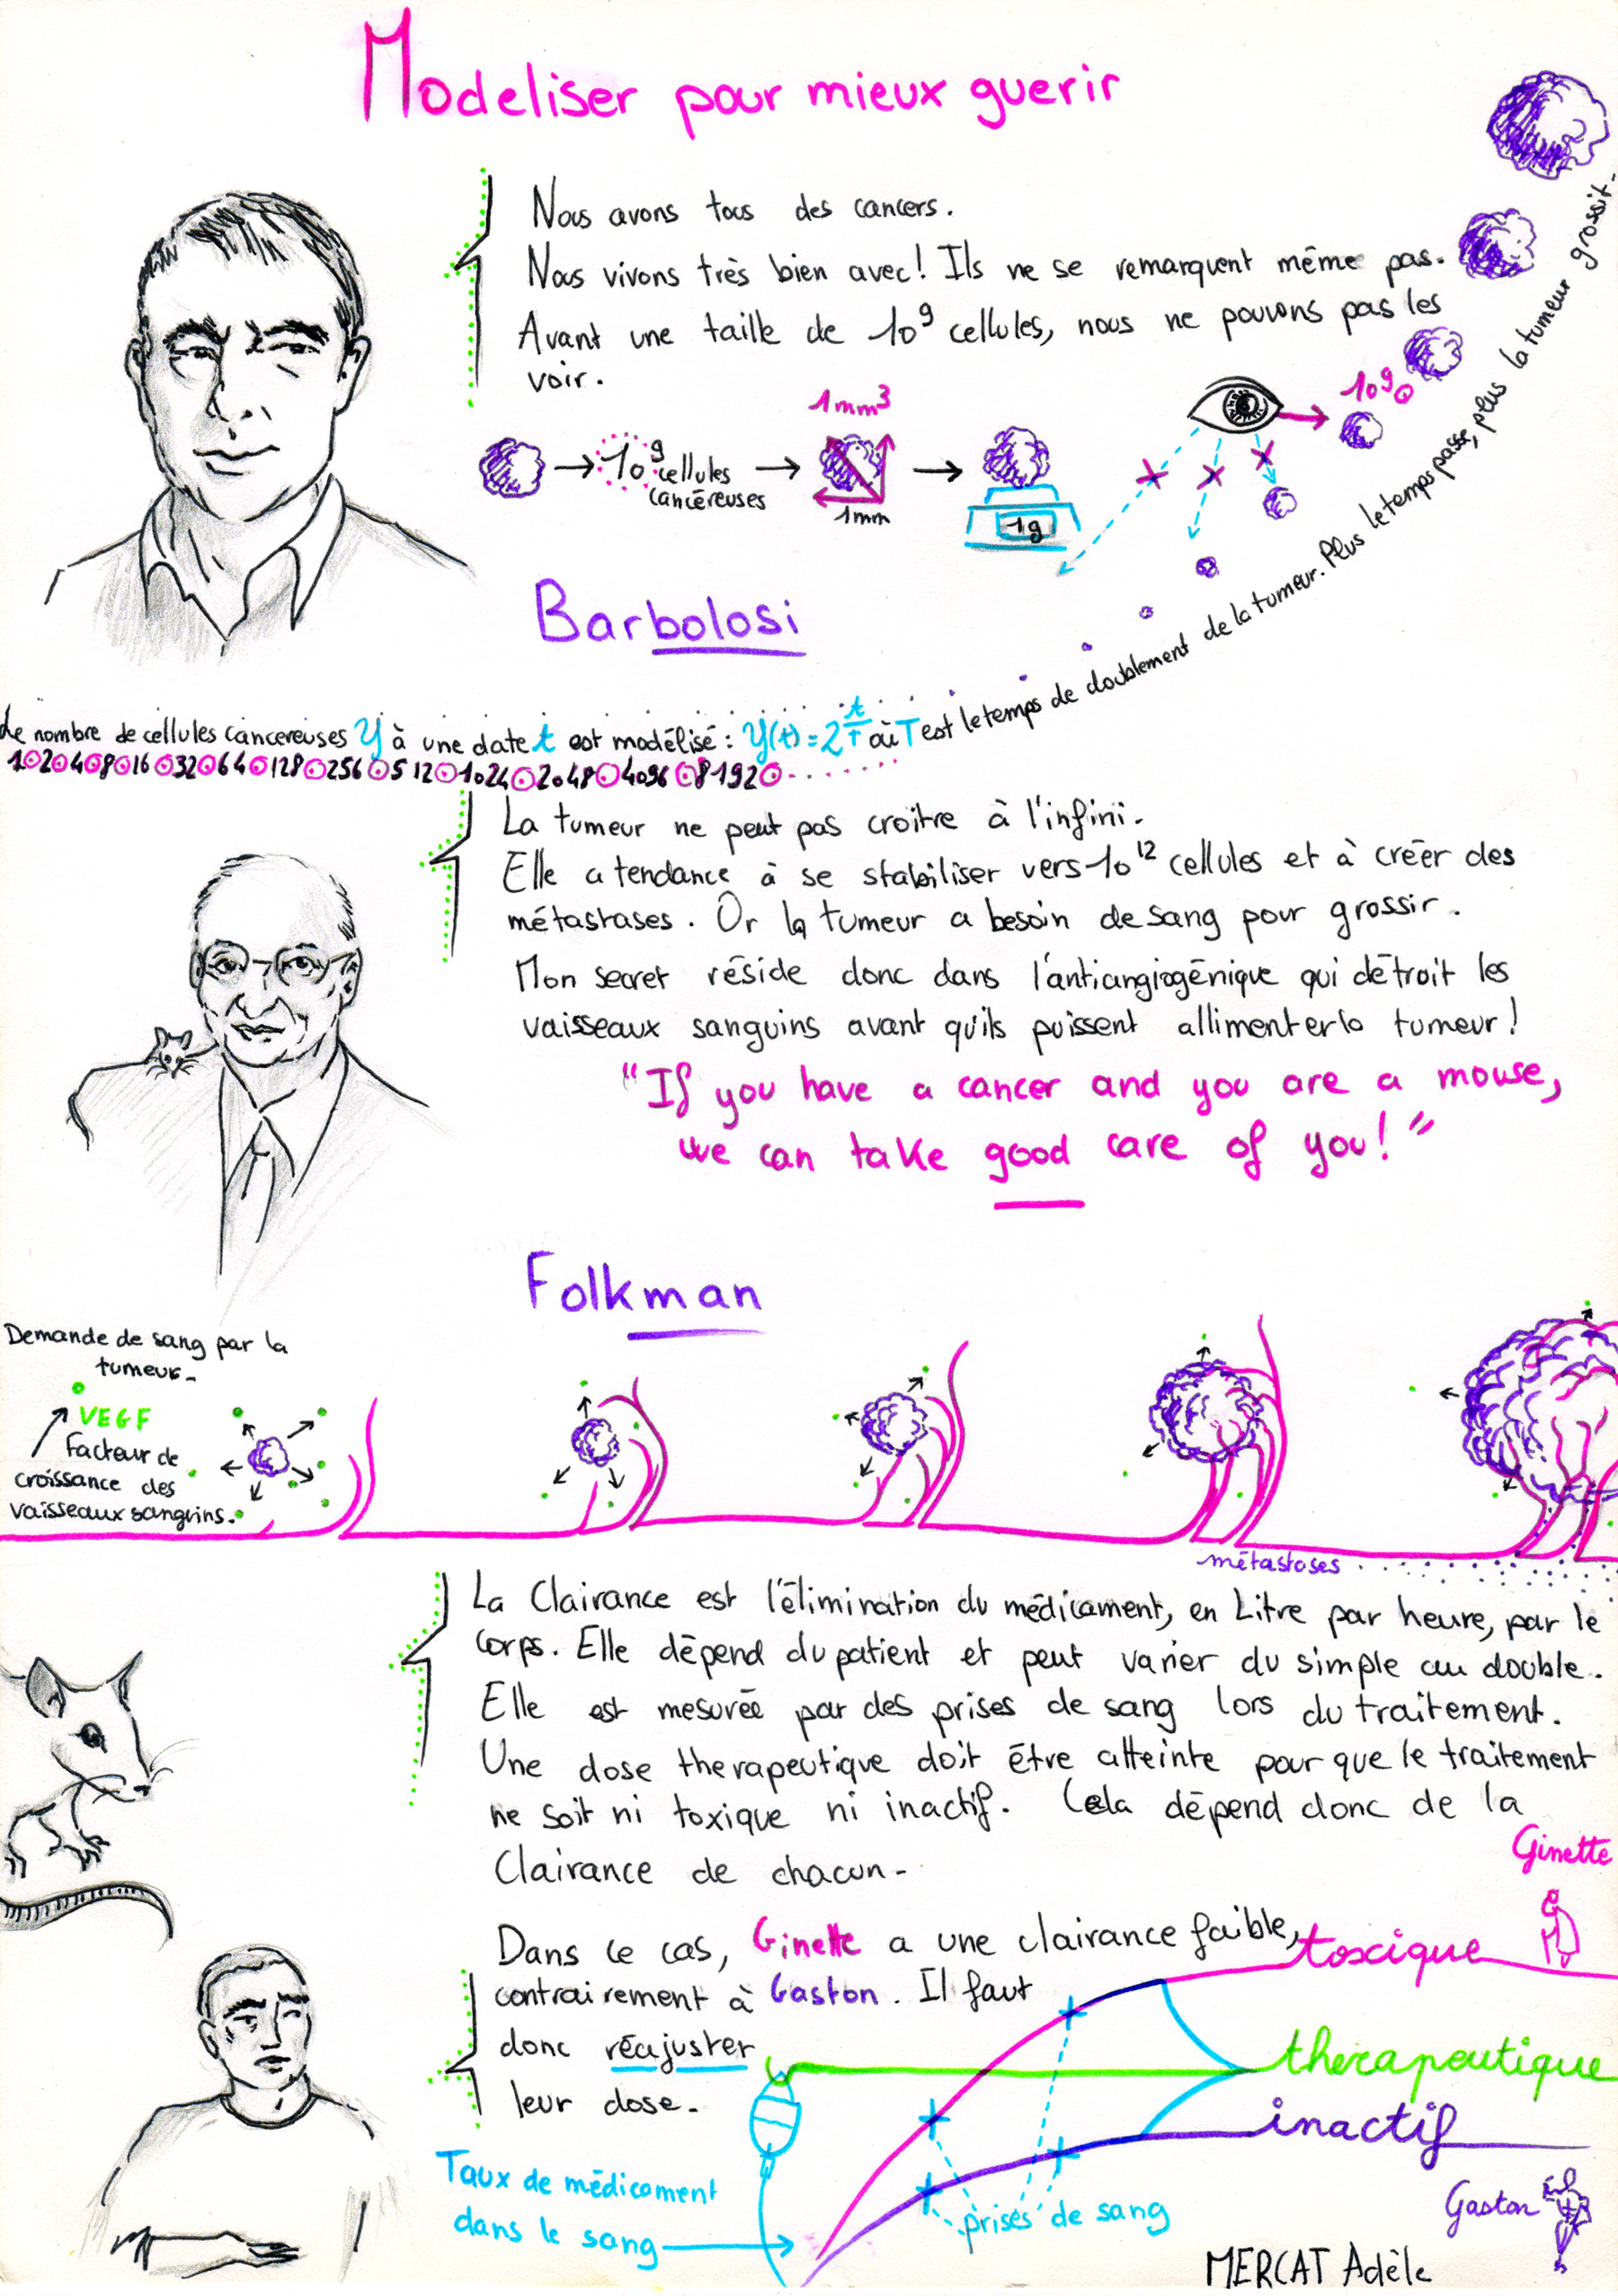 Modeliser pour mieux guerir
Nous avons tous des cancers.
Nous vivons très bien avec! Ils ne se remarquent même pas.
Avant une taille de 10⁹ cellules, nous ne pouvons pas les
voir.
10⁹ cellules
cancéreuses
1mm³
1mm
1g
10⁹
Barbolosi
Le nombre de cellules cancereuses Y à une date t est modélisé : Y(t) = 2^t/T où T est le temps de doublement de la tumeur. Plus le temps passe, plus la tumeur grossit.
1 2 4 8 16 32 64 128 256 512 1024 2048 4096 8192
La tumeur ne peut pas croitre à l'infini.
Elle a tendance à se stabiliser vers 10¹² cellules et à créer des
métastases. Or la tumeur a besoin de sang pour grossir.
Mon secret réside donc dans l'antiangiogénique qui détroit les
vaisseaux sanguins avant qu'ils puissent allimenter la tumeur!
"If you have a cancer and you are a mouse,
we can take good care of you!"
Folkman
Demande de sang par la
tumeur.
VEGF
Facteur de
croissance des
vaisseaux sanguins.
métastases
La Clairance est l'élimination du médicament, en Litre par heure, par le
corps. Elle dépend du patient et peut varier du simple au double.
Elle est mesurée par des prises de sang lors du traitement.
Une dose therapeutique doit être atteinte pour que le traitement
ne soit ni toxique ni inactif. Cela dépend donc de la
Clairance de chacun.
Ginette
Dans ce cas, Ginette a une clairance faible,
contrairement à Gaston. Il faut
donc réajuster
leur dose.
toxique
therapeutique
inactif
Taux de médicament
dans le sang
prises de sang
Gaston
MERCAT Adèle